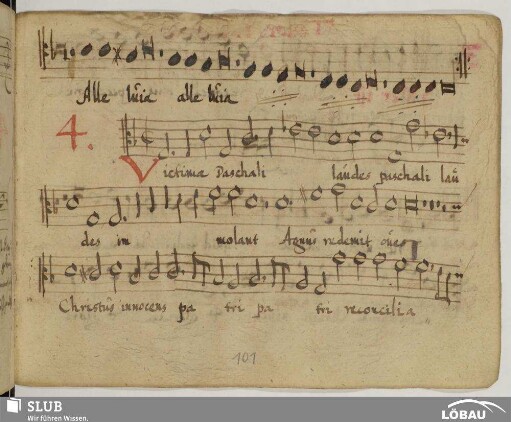 Alle luia alle luia
4.
Victimæ Paschali laudes paschali lau
des im molant Agnus redemit oues
Christus innocens pa tri pa tri reconcilia
101
SLUB
Wir führen Wissen.
LÖBAU